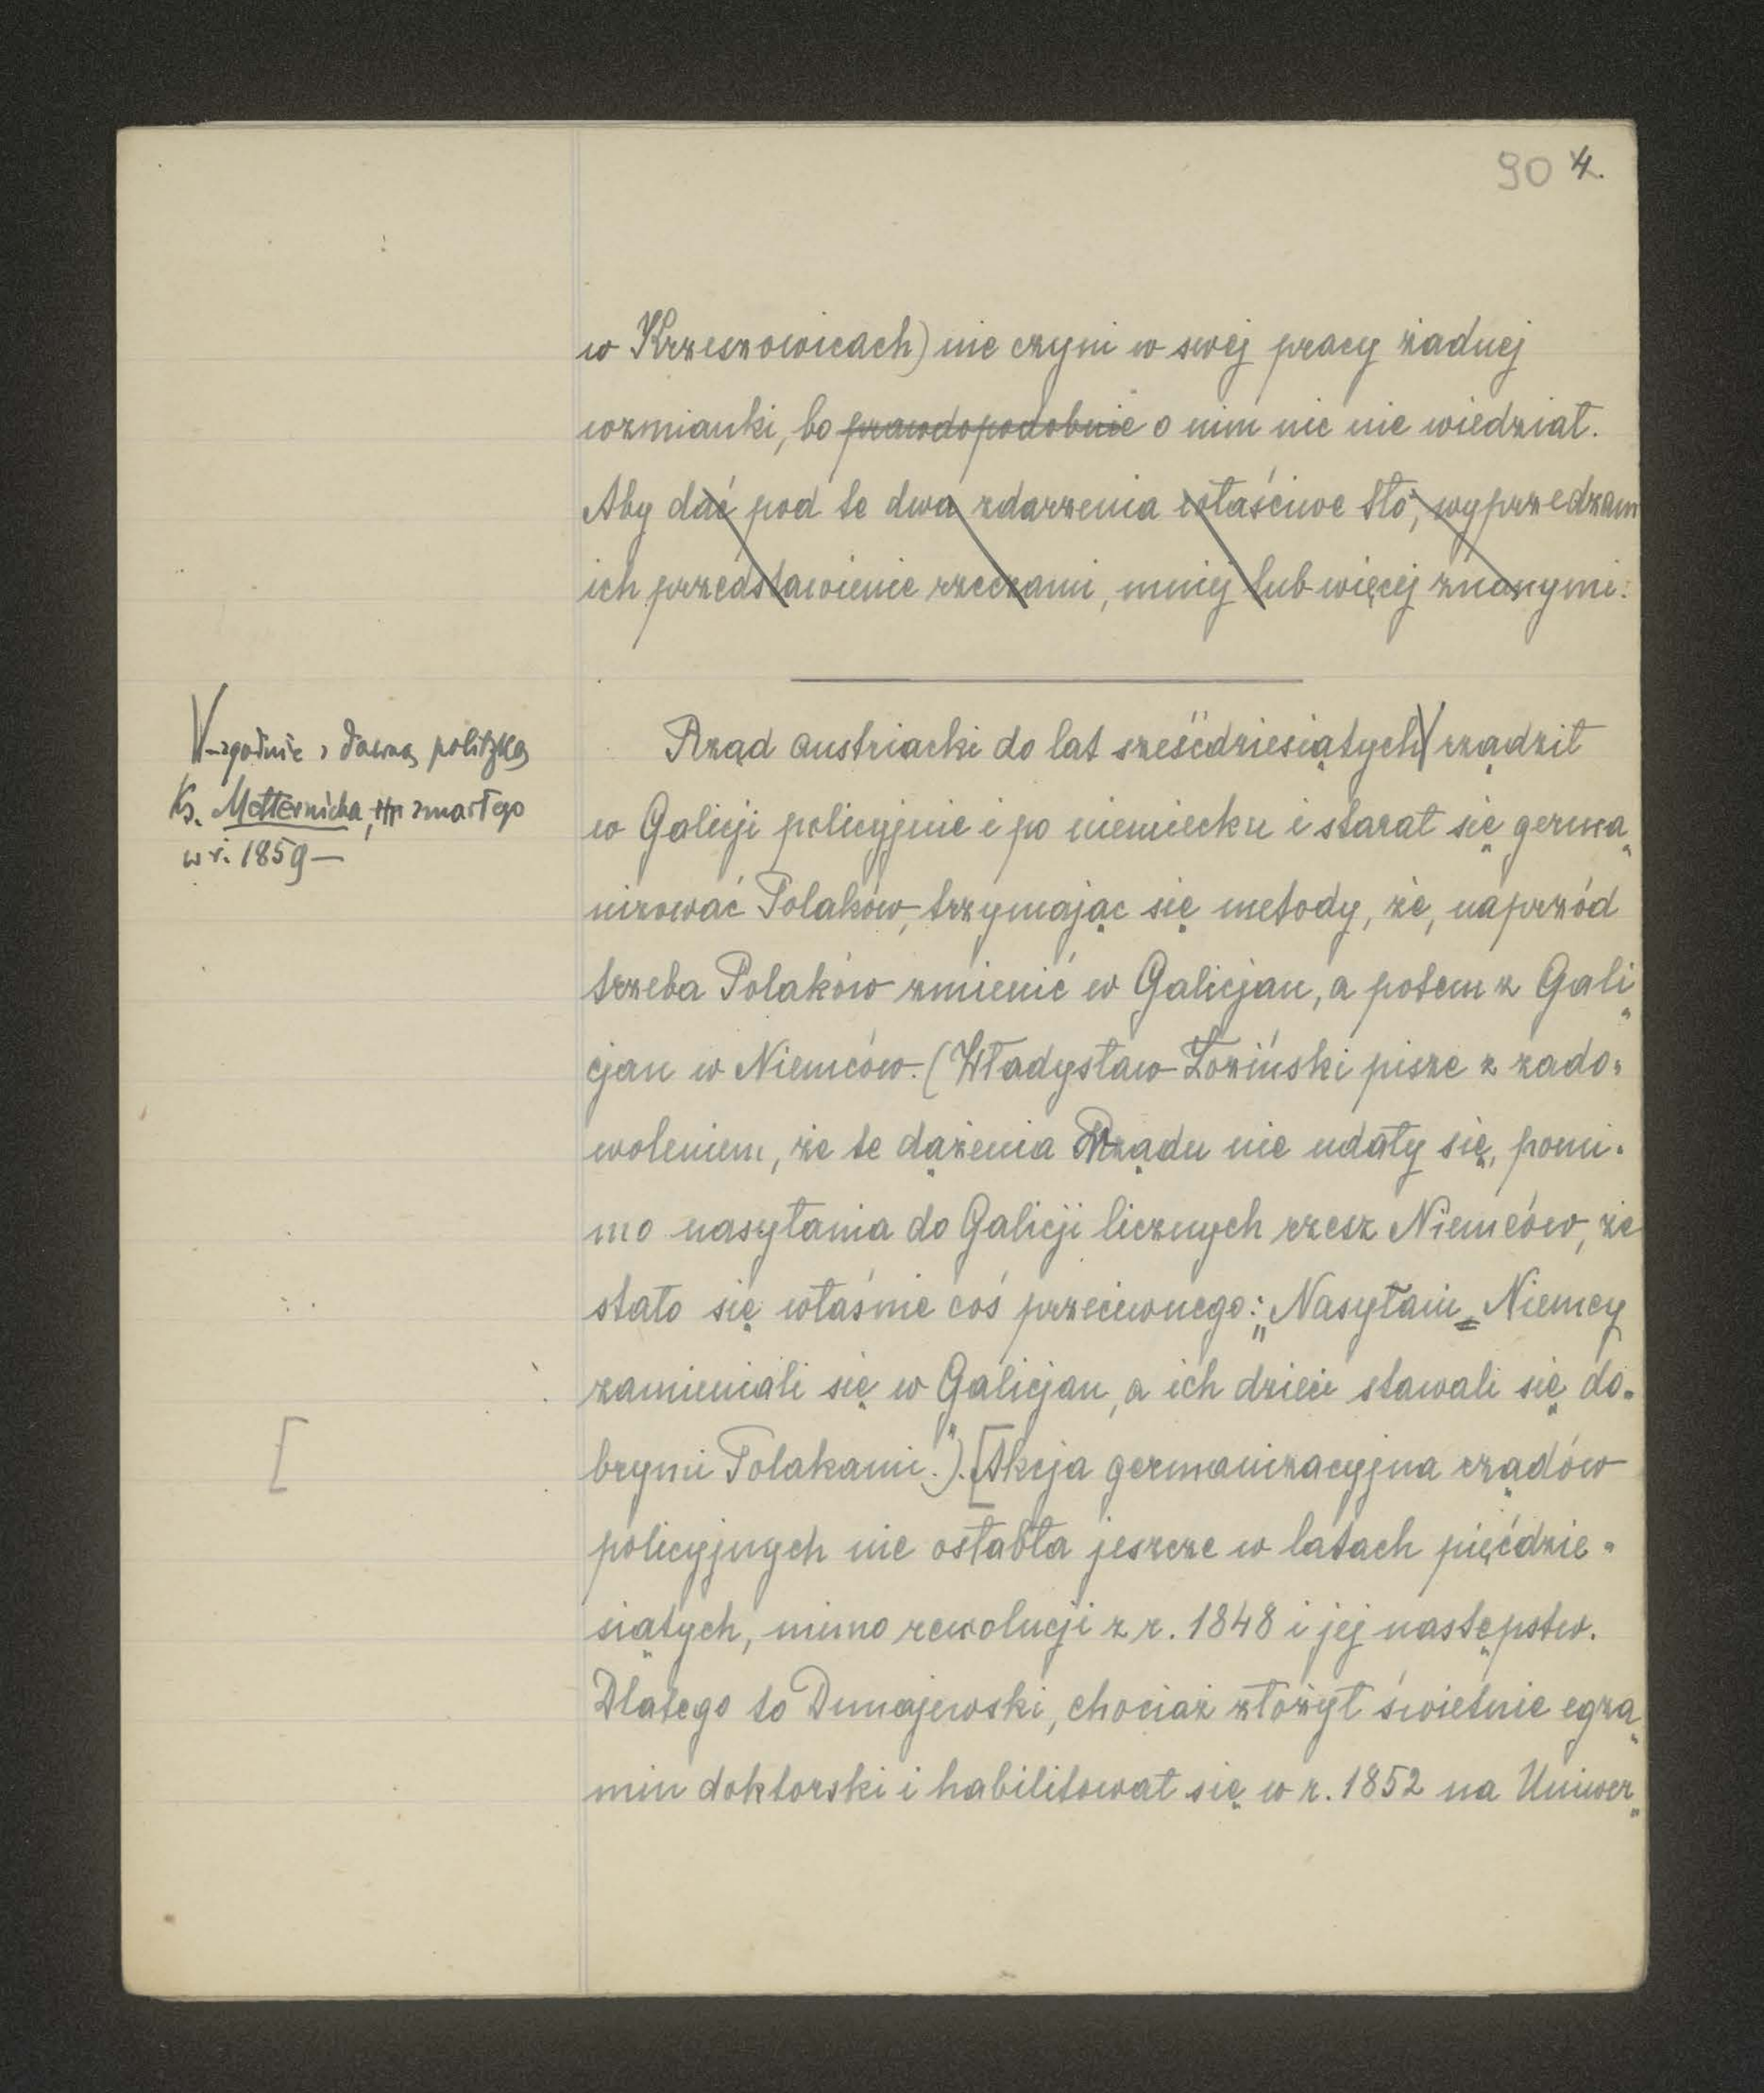 90 4.
w Krzeszowicach) nie czyni w swej pracy żadnej
wzmianki, bo prawdopodobnie o nim nic nie wiedział.
Aby dać pod te dwa zdarzenia właściwe tło, wyprzedzam
ich przedstawienie rzeczami, mniej lub więcej znanymi.
Rząd austriacki do lat sześćdziesiątych V rządził
V-zgodnie z dawną polityką
Ks. Metternicha, zmarłego
w r. 1859—
w Galicji policyjnie i po niemiecku i starał się germa„
nizować Polaków, trzymając się metody, że, naprzód
trzeba Polaków zmienić w Galicjan, a potem z Gali„
cjan w Niemców. (Władysław Łoziński pisze z zado„
woleniem, że te dążenia Rządu nie udały się, pomi„
mo nasyłania do Galicji licznych rzesz Niemców, że
stało się właśnie coś przeciwnego: „Nasyłani Niemcy
zamieniali się w Galicjan, a ich dzieci stawali się do„
brymi Polakami.”). [Akcja germanizacyjna rządów
[
policyjnych nie osłabła jeszcze w latach pięćdzie„
siątych, mimo rewolucji z r. 1848 i jej następstw.
Dlatego to Dunajewski, chociaż złożył świetnie egza„
min doktorski i habilitował się w r. 1852 na Uniwer„